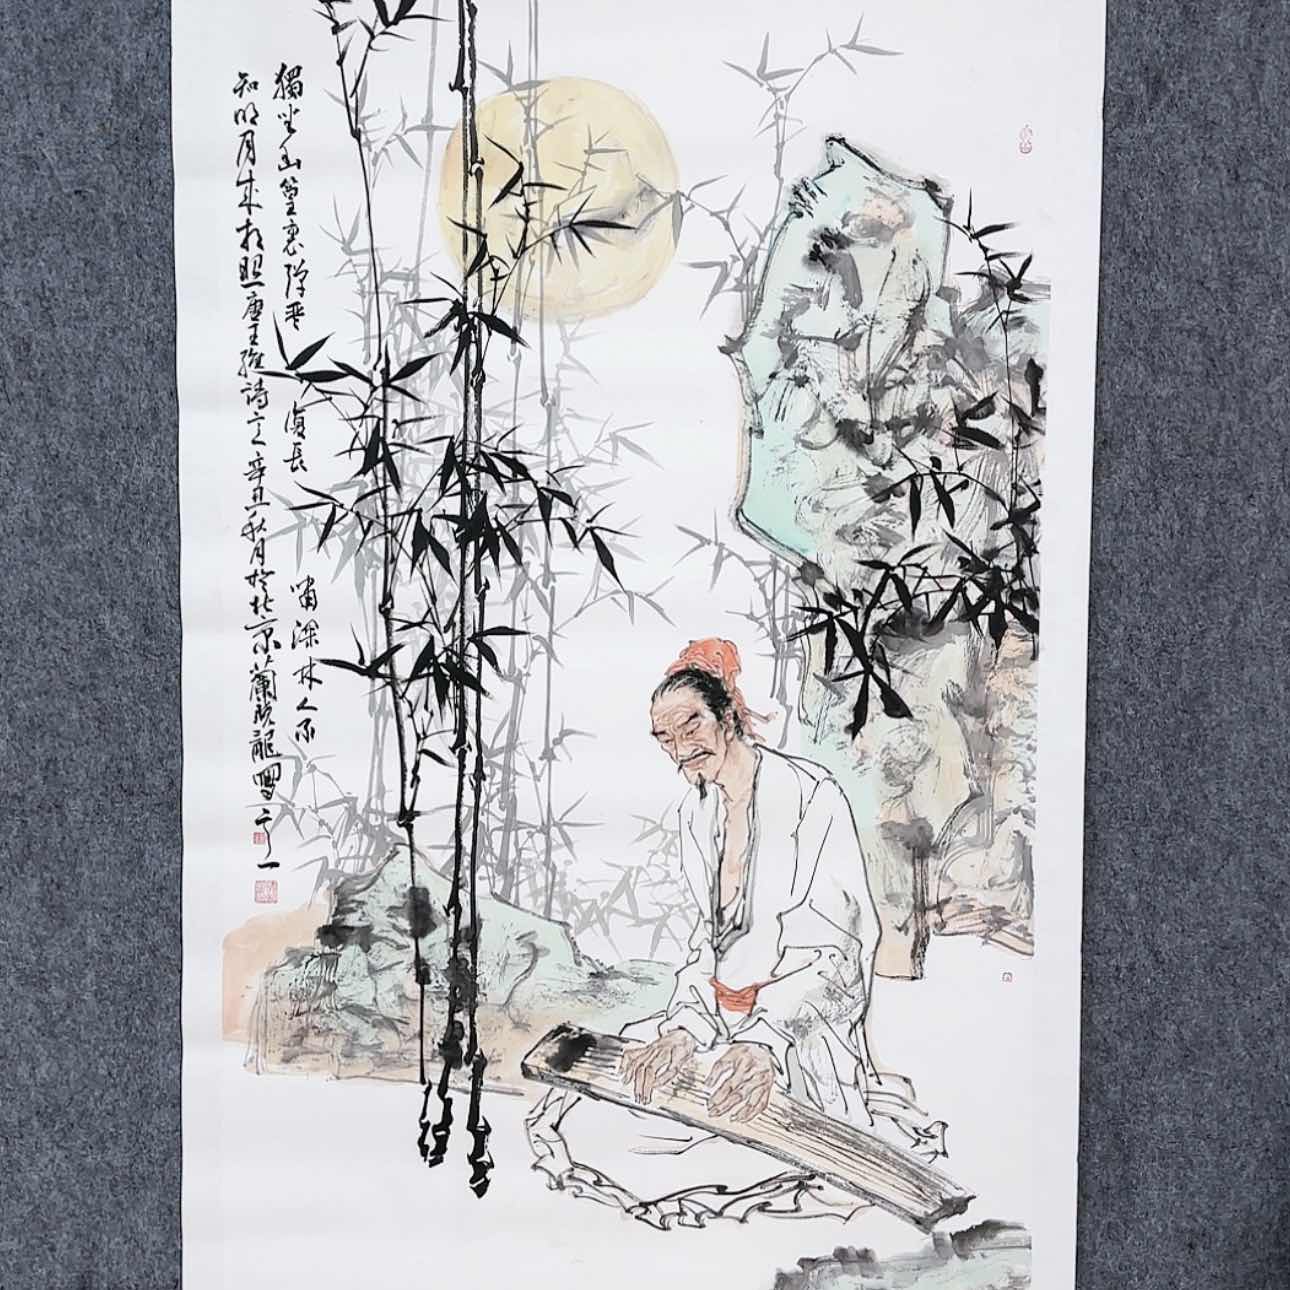 獨坐幽篁裏彈琴
復長
嘯深林人不
知明月來相照唐王維詩意辛丑秋月於北京蘭龍